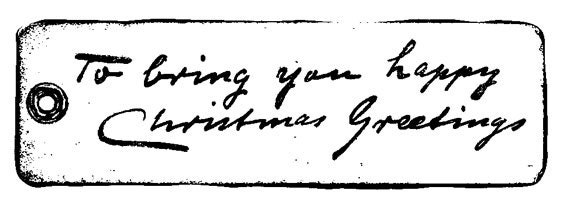 To bring you happy
Christmas Greetings